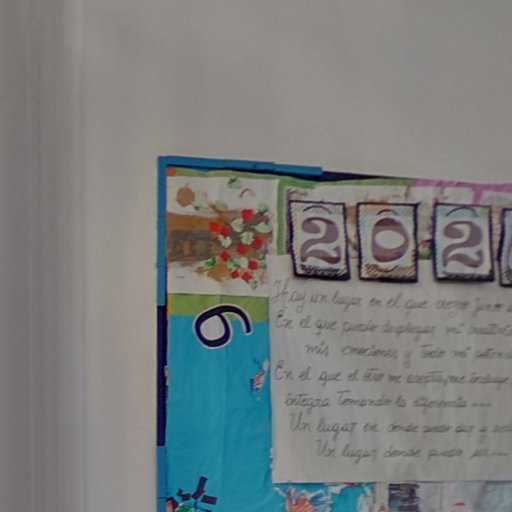 2 0 2
6
Hay un lugar en el que crezco junto a
En el que puedo desplegar mi
mis emociones y todo mi
En el que el otro me acepta, me incluye
integra tomando la diferencia ...
Un lugar en donde puedo dar y
Un lugar donde puedo